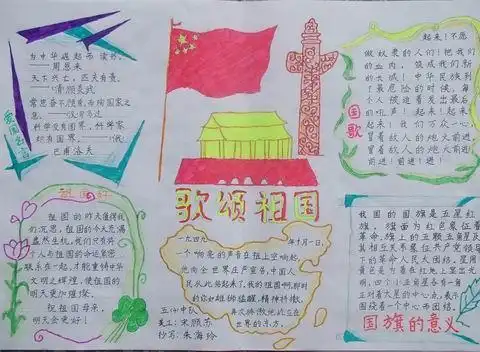 为中华崛起而读书。
——周恩来
天下兴亡，匹夫有责。
——顾炎武
常思奋不顾身，而殉国家之
急。——司马迁
科学没有国界，科学家
却有国界。
——巴甫洛夫
爱国名言
歌颂祖国
起来！不愿
做奴隶的人们！把我们
的血肉，筑成我们新
的长城！中华民族到
了最危险的时候，每
个人被迫着发出最后
的吼声！起来！起来！
起来！我们万众一心，
冒着敌人的炮火前进，
冒着敌人的炮火前进！
前进！前进！进！
国歌
祖国好
祖国的昨天值得我
们沉思，祖国的今天充满
盎然生机，我们只有将
个人与祖国的命运紧密
联系在一起，才能重铸中华
文明之辉煌，使祖国的
明天更加璀璨。
祝祖国母亲，
明天会更好！
一九四九年十月一日，
一个响亮的声音在祖国上空响起，
他向全世界庄严宣告，中国人
民从此站起来了，我的祖国啊，那时
的你如雄狮猛醒，精神抖擞，
再次骄傲地屹立在
世界的东方。
五(4)中队
美工：宋颜苏
抄写：朱海玲
我国的国旗是五星红
旗，旗面为红色象征着
革命，旗上的五颗五角星及
其相互关系象征共产党领导
下的革命人民大团结。星用
黄色是为着在红地上显出光
明，四个小五角星各有一
正对着大星的中心点，表示
围绕着一个中心而团结。
国旗的意义